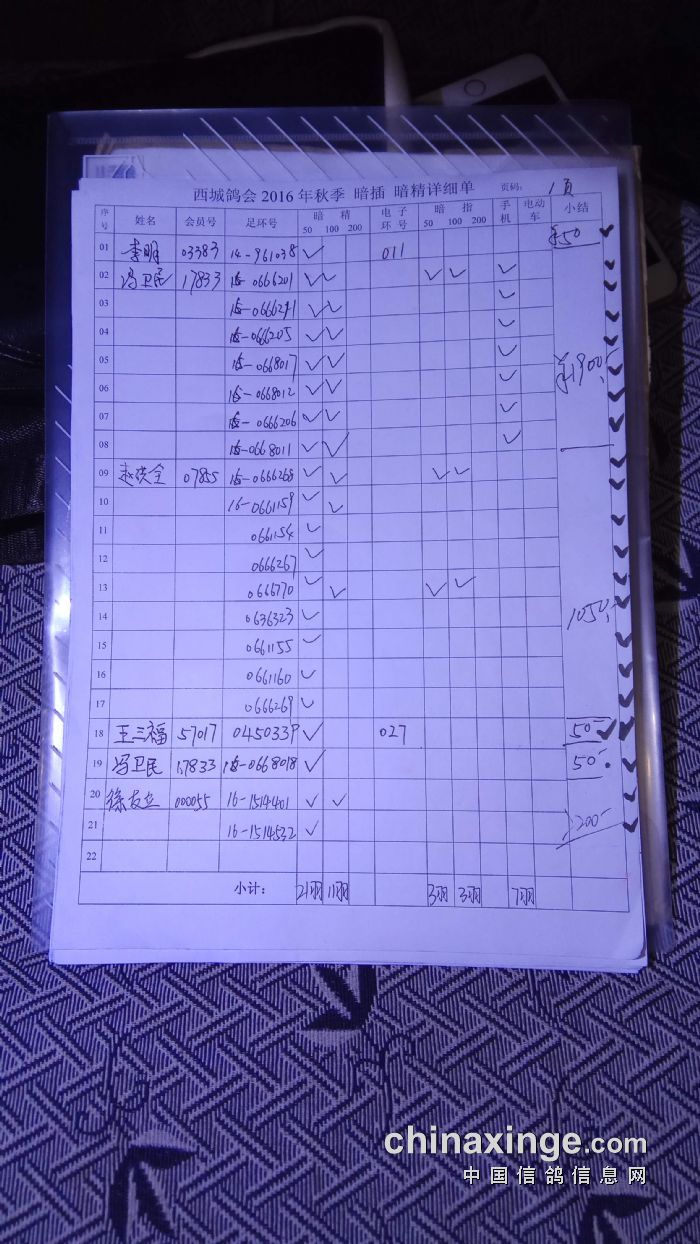 西城鸽会 2016 年秋季 暗插 暗精详细单 页码: 1页
序号 姓名 会员号 足环号 暗 精 50 100 200 电子环号 暗 指 50 100 200 手机 电动车 小结
01 李明 03383 14-961038 ✓ 011 ¥50
02 冯卫民 17833 15-0666201 ✓ ✓ ✓ ✓ ✓
03 ✓ ✓ ✓
04 15-0666205 ✓ ✓ ✓
05 15-0668017 ✓ ✓ ✓ ¥1900
06 15-0668012 ✓ ✓ ✓
07 15-0666206 ✓ ✓ ✓
08 15-0668011 ✓ ✓ ✓
09 07855 15-0666268 ✓ ✓ ✓ ✓
10 16-0661159 ✓ ✓
11 0661154 ✓
12 0666267 ✓
13 0666770 ✓ ✓ ✓ ✓
14 0636323 ✓ 1050
15 0661155 ✓
16 0661160 ✓
17 0666269 ✓
18 王三福 57017 0450339 ✓ 027 50
19 冯卫民 17833 15-0668018 ✓ 50
20 徐友立 000055 16-1514401 ✓ ✓
21 16-1514532 ✓ 200
22
小计: 21羽 11羽 3羽 3羽 7羽
chinaxinge.com
中国信鸽信息网